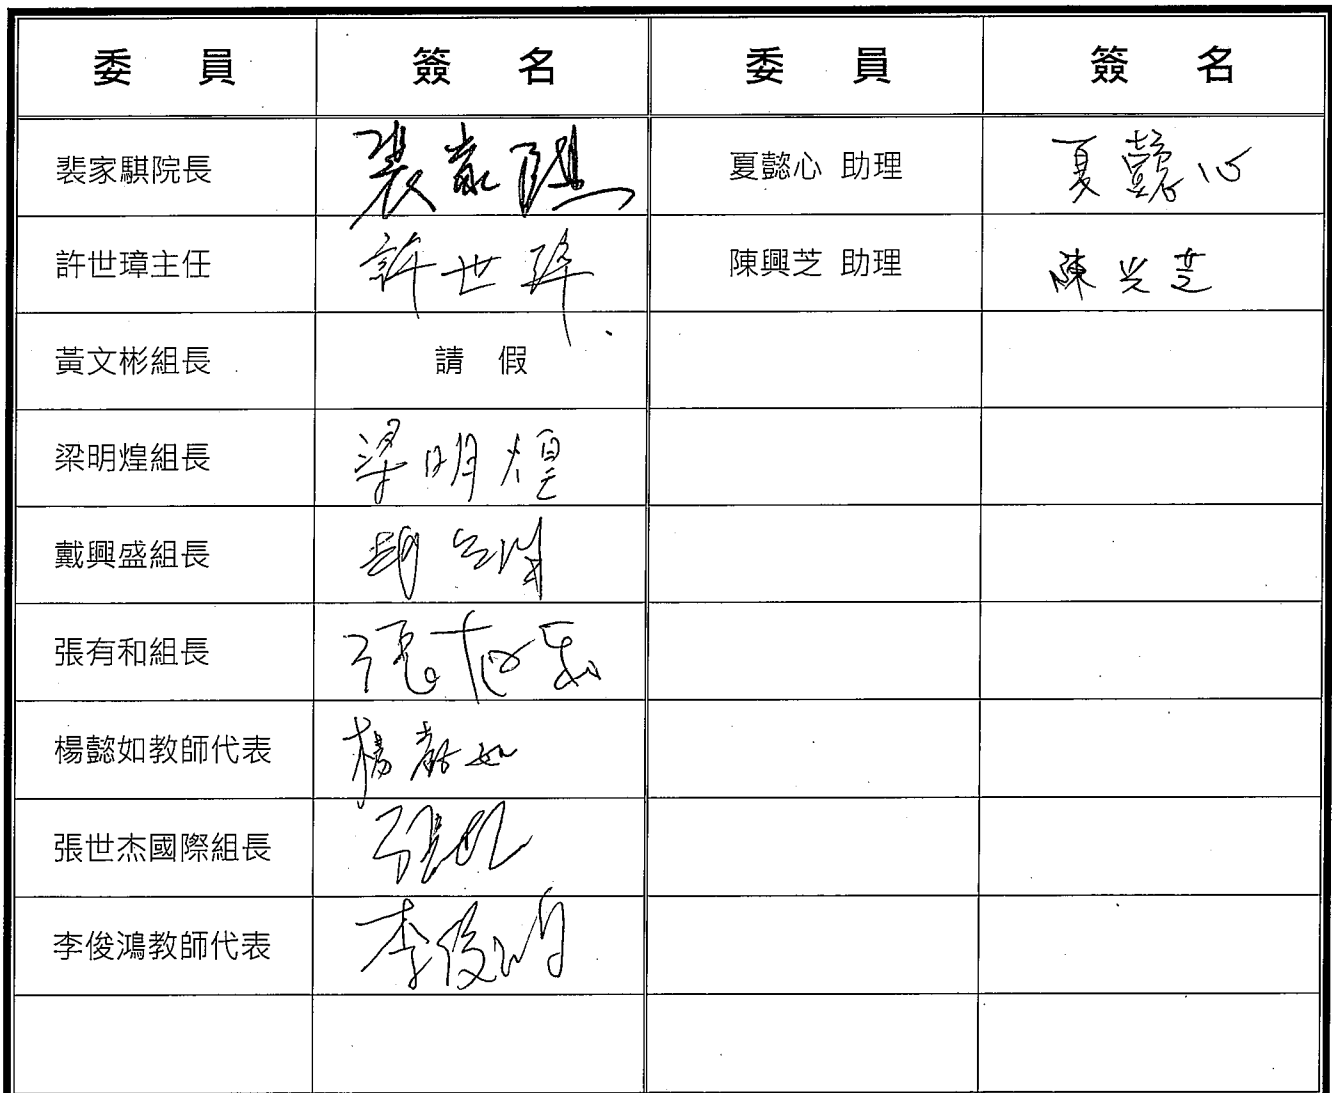 委員 簽名 委員 簽名
裴家騏院長 裴家騏 夏懿心 助理 夏懿心
許世璋主任 許世璋 陳興芝 助理 陳兴芝
黃文彬組長 請假
梁明煌組長 梁明煌
戴興盛組長
張有和組長 張有和
楊懿如教師代表 楊懿如
張世杰國際組長
李俊鴻教師代表 李俊鴻